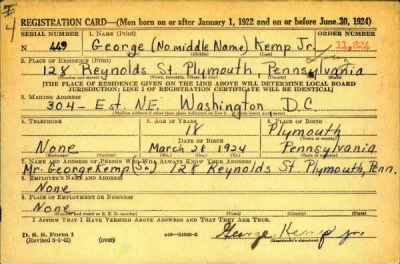 REGISTRATION CARD—(Men born on or after January 1, 1922 and on or before June 30, 1924)
SERIAL NUMBER 1. NAME (Print) ORDER NUMBER
N 449 George (No middle Name) Kemp Jr. 11,824
2. PLACE OF RESIDENCE (Print)
128 Reynolds St. Plymouth Pennsylvania
[THE PLACE OF RESIDENCE GIVEN ON THE LINE ABOVE WILL DETERMINE LOCAL BOARD
JURISDICTION; LINE 2 OF REGISTRATION CERTIFICATE WILL BE IDENTICAL]
3. MAILING ADDRESS
304- Est. N.E. Washington D.C
4. TELEPHONE 5. AGE IN YEARS 6. PLACE OF BIRTH
18 Plymouth
DATE OF BIRTH
None March 28 1924 Pennsylvania
7. NAME AND ADDRESS OF PERSON WHO WILL ALWAYS KNOW YOUR ADDRESS
Mr. George Kemp (Sr.) 128 Reynolds St Plymouth, Penn.
8. EMPLOYER'S NAME AND ADDRESS
None
9. PLACE OF EMPLOYMENT OR BUSINESS
None
I AFFIRM THAT I HAVE VERIFIED ABOVE ANSWERS AND THAT THEY ARE TRUE.
D. S. S. Form 1
(over)
George Kemp Jr.
(Registrant's signature)